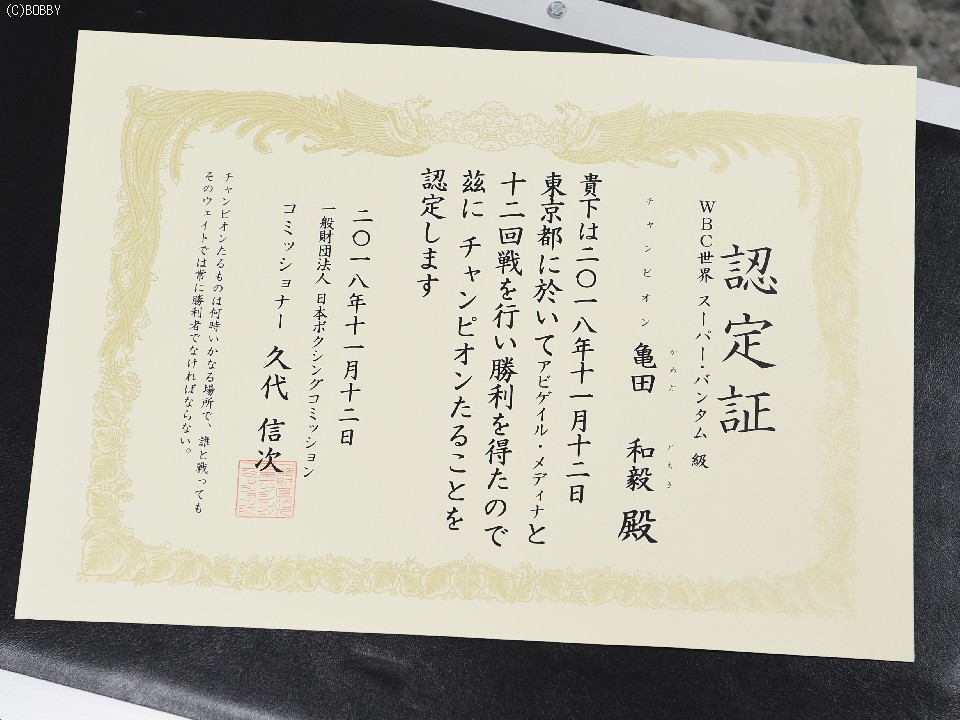 (C)BOBBY
認定証
WBC世界 スーパー・バンタム 級
チャンピオン 亀田 和毅 殿
かめだ ともき
貴下は二〇一八年十一月十二日
東京都に於いてアビゲイル・メディナと
十二回戦を行い勝利を得たので
茲に チャンピオンたることを
認定します
二〇一八年十一月十二日
一般財団法人 日本ボクシングコミッション
コミッショナー 久代 信次
チャンピオンたるものは何時いかなる場所で、誰と戦っても
そのウェイトでは常に勝利者でなければならない。